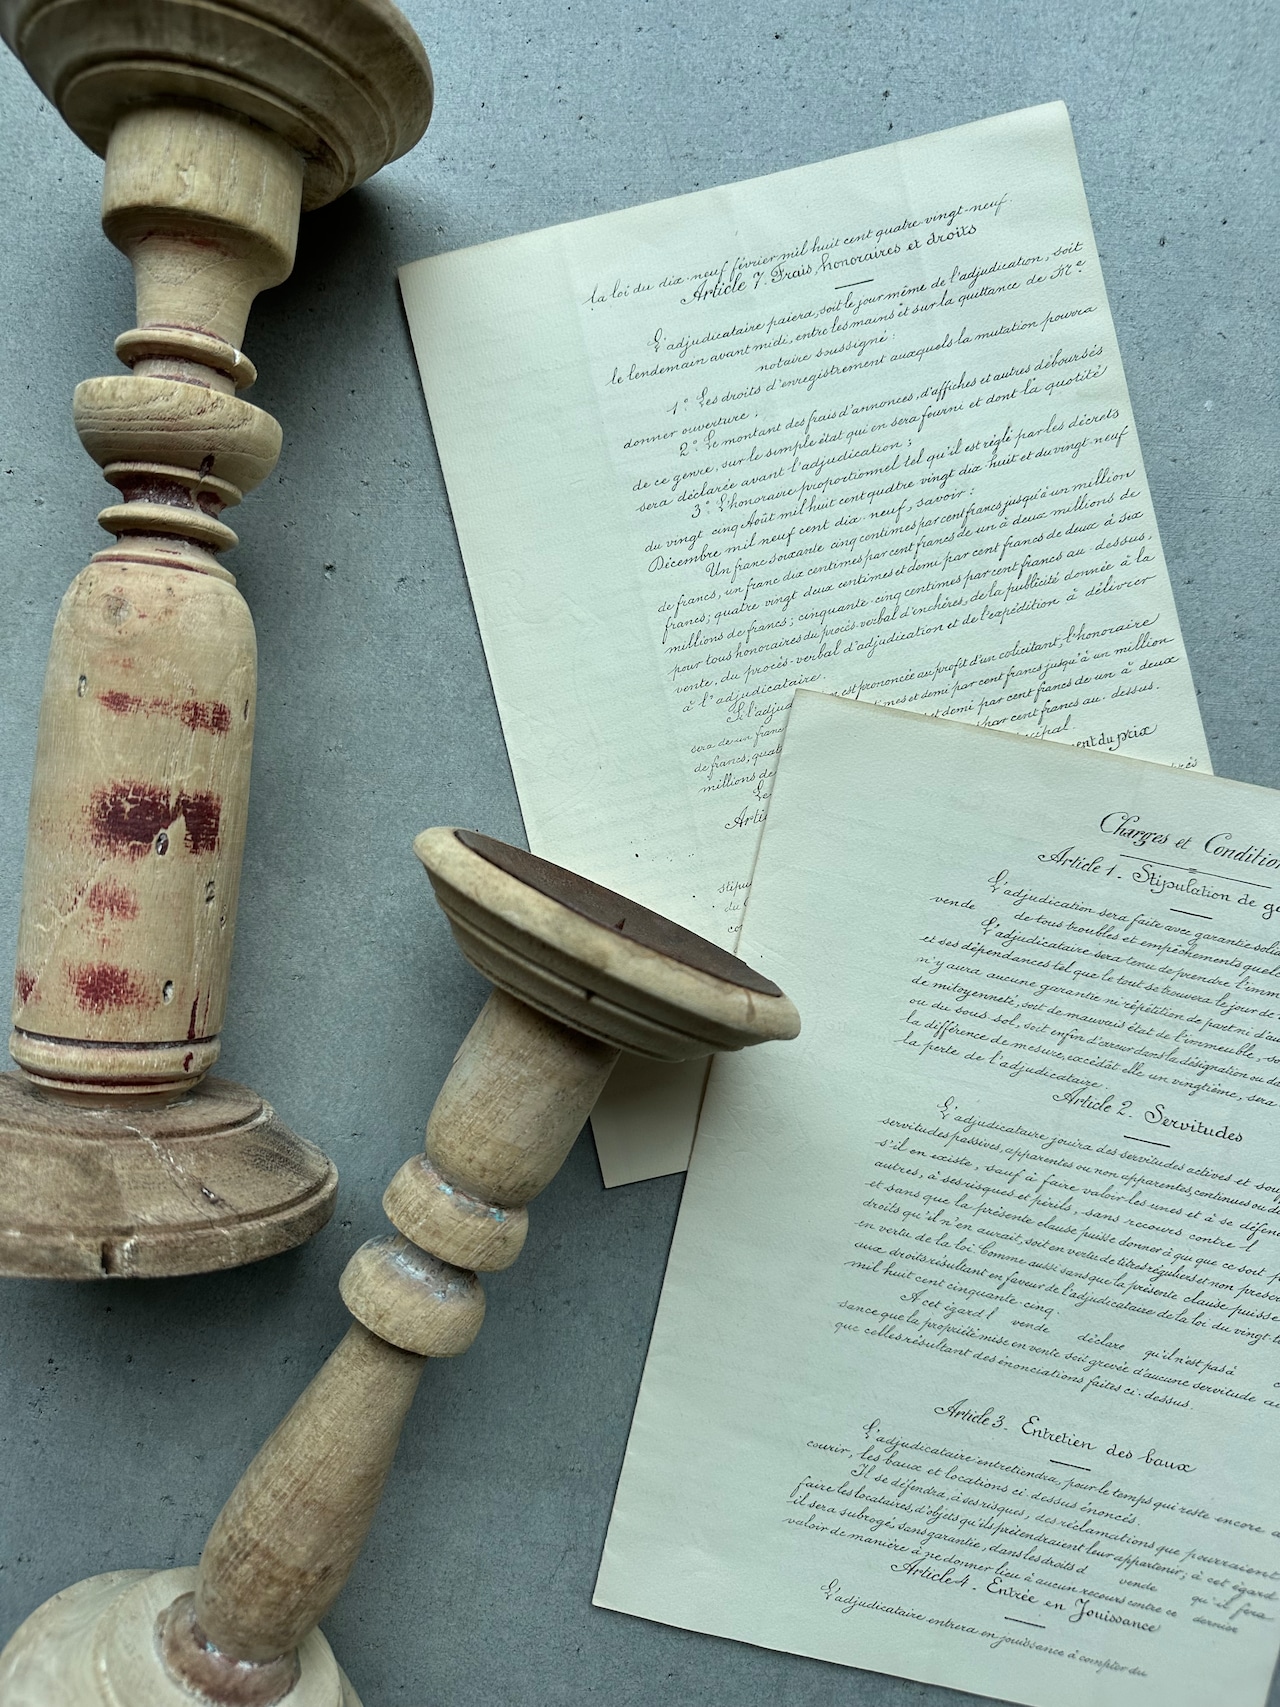 la loi du dix-neuf février mil huit cent quatre-vingt-neuf.
Article 7. Frais, honoraires et droits
L'adjudicataire paiera, soit le jour même de l'adjudication, soit
le lendemain avant midi, entre les mains et sur la quittance de Me
notaire soussigné :
1° Les droits d'enregistrement auxquels la mutation pourra
donner ouverture ;
2° Le montant des frais d'annonces, d'affiches et autres déboursés
de ce genre, sur le simple état qui en sera fourni et dont la quotité
sera déclarée avant l'adjudication ;
3° L'honoraire proportionnel tel qu'il est réglé par les décrets
du vingt cinq Août mil huit cent quatre vingt dix huit et du vingt-neuf
Décembre mil neuf cent dix-neuf, savoir :
Un franc soixante cinq centimes par cent francs jusqu'à un million
de francs, un franc dix centimes par cent francs de un à deux millions de
francs ; quatre vingt deux centimes et demi par cent francs de deux à six
millions de francs ; cinquante-cinq centimes par cent francs au-dessus,
pour tous honoraires du procès-verbal d'enchères, de la publicité donnée à la
vente, du procès-verbal d'adjudication et de l'expédition à délivrer
à l'adjudicataire.
Si l'adjud est prononcée au profit d'un colicitant, l'honoraire
sera de un franc times et demi par cent francs jusqu'à un million
de francs, quat et demi par cent francs de un à deux
millions de par cent francs au-dessus.
Le cipal.
Artic ent du prix
stipu
du
co
Charges et Condition
Article 1. Stipulation de ga
L'adjudication sera faite avec garantie solid
vende de tous troubles et empêchements quelc
L'adjudicataire sera tenu de prendre l'imm
et ses dépendances tel que le tout se trouvera le jour de
n'y aura aucune garantie ni répétition de part ni d'au
de mitoyenneté, soit de mauvais état de l'immeuble, so
ou du sous-sol, soit enfin d'erreur dans la désignation ou da
la différence de mesure, excédât elle un vingtième, sera
la perte de l'adjudicataire.
Article 2. Servitudes
L'adjudicataire jouira des servitudes actives et souf
servitudes passives, apparentes ou non apparentes, continues ou di
s'il en existe, sauf à faire valoir les unes et à se défen
autres, à ses risques et périls, sans recours contre l
et sans que la présente clause puisse donner à qui que ce soit p
droits qu'il n'en aurait, soit en vertu de titres réguliers et non prescr
en vertu de la loi. Comme aussi sans que la présente clause puisse
aux droits résultant en faveur de l'adjudicataire de la loi du vingt-t
mil huit cent cinquante-cinq.
A cet égard l vende déclare qu'il n'est pas à
sance que la propriété mise en vente soit grevée d'aucune servitude au
que celles résultant des énonciations faites ci-dessus.
Article 3. Entretien des baux
L'adjudicataire entretiendra, pour le temps qui reste encore à
courir, les baux et locations ci-dessus énoncés.
Il se défendra, à ses risques, des réclamations que pourraient
faire les locataires, d'objets qu'ils prétendraient leur appartenir ; à cet égard
il sera subrogé, sans garantie, dans les droits d vende qu'il fera
valoir de manière à ne donner lieu à aucun recours contre ce dernier
Article 4. Entrée en Jouissance
L'adjudicataire entrera en jouissance à compter du